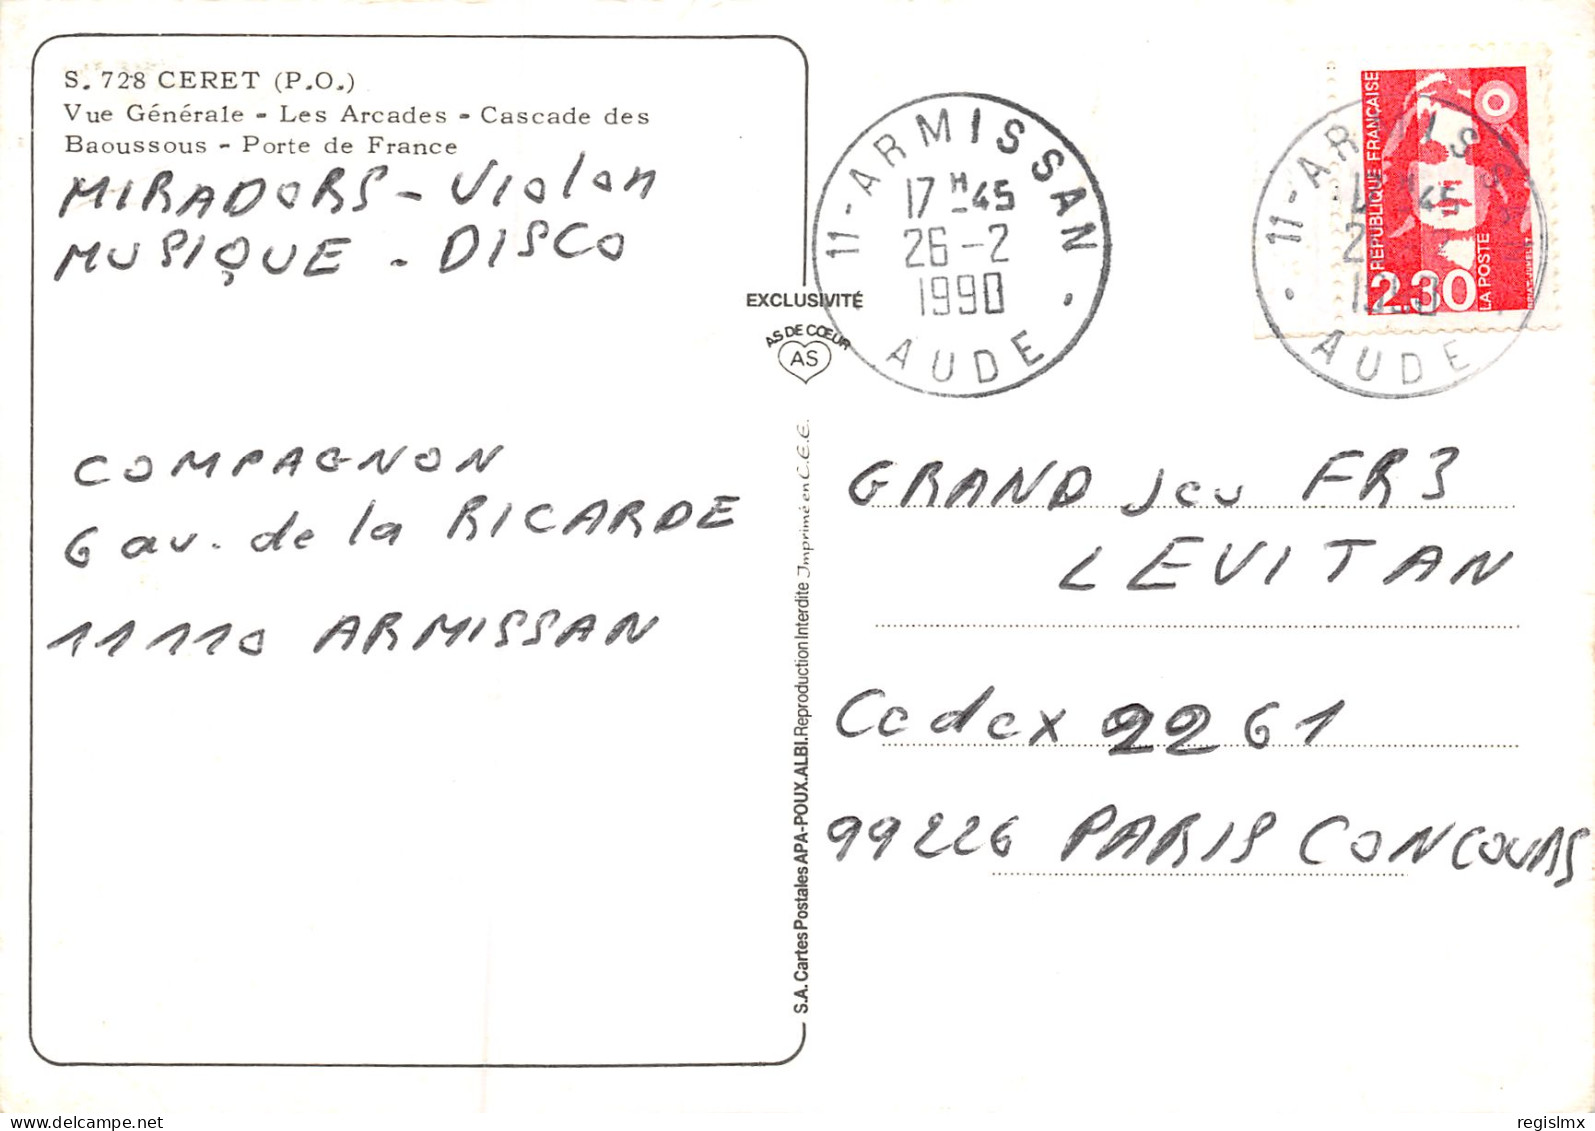 S. 728 CERET (P.O.)
Vue Générale - Les Arcades - Cascade des
Baoussous - Porte de France
MIRADORS - Violon
MUSIQUE - DISCO
COMPAGNON
6 av. de la RICARDE
11110 ARMISSAN
EXCLUSIVITÉ
AS DE CŒUR
AS
S.A. Cartes Postales APA-POUX. ALBI. Reproduction Interdite Imprimé en C.E.E.
11-ARMISSAN
17H45
26-2
1990
AUDE
11-ARMISSAN
AUDE
REPUBLIQUE FRANÇAISE
2,30
LA POSTE
GRAND Jeu FR3
LEVITAN
Cedex 2261
99226 PARIS CONCOURS
delcampe.net
regislmx